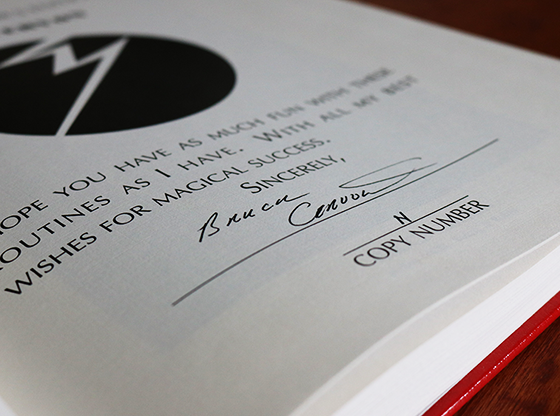 HOPE YOU HAVE AS MUCH FUN WITH THESE
ROUTINES AS I HAVE. WITH ALL MY BEST
WISHES FOR MAGICAL SUCCESS.
SINCERELY,
Bruce Cervon
N
COPY NUMBER